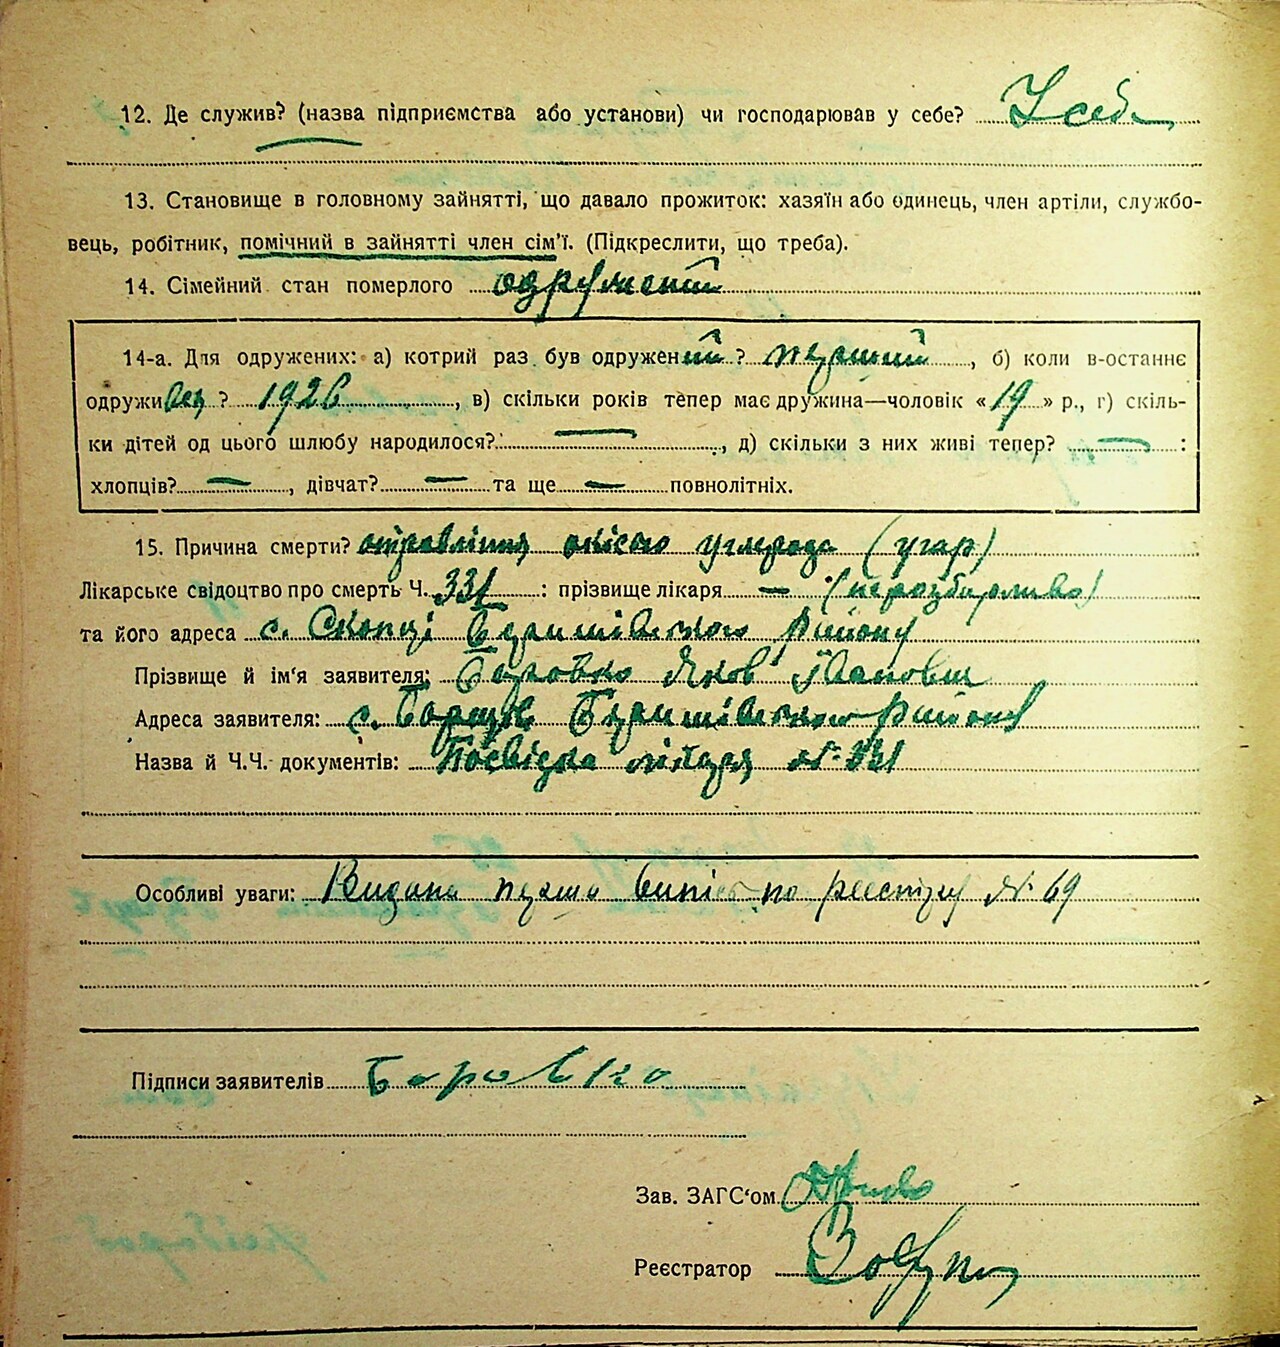 12. Де служив? (назва підприємства або установи) чи господарював у себе? У себе
13. Становище в головному зайнятті, що давало прожиток: хазяїн або одинець, член артіли, службо-
вець, робітник, помічний в зайнятті член сім'ї. (Підкреслити, що треба).
14. Сімейний стан померлого одружений
14-а. Для одружених: а) котрий раз був одружений? перший, б) коли в-останнє
одружився? 1926, в) скільки років тепер має дружина—чоловік «19» р., г) скіль-
ки дітей од цього шлюбу народилося? —, д) скільки з них живі тепер? — :
хлопців? —, дівчат? — та ще — повнолітніх.
15. Причина смерти? отравління окісью углерода (угар)
Лікарське свідоцтво про смерть Ч. 331 : прізвище лікаря — (нерозбірливо)
та його адреса с. Скопці Баришівського району
Прізвище й ім'я заявителя: Боровко Яков Іванович
Адреса заявителя: с. Борщів Баришівського району
Назва й Ч.Ч. документів: Посвідка лікаря № 331
Особливі уваги: Видана перша випись по реєстру № 69
Підписи заявителів Боровко
Зав. ЗАГС'ом
Реєстратор